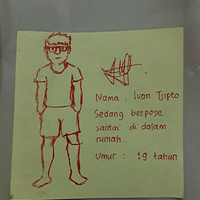 Nama : Ivan Tjipto
Sedang berpose
santai di dalam
rumah
Umur : 19 tahun